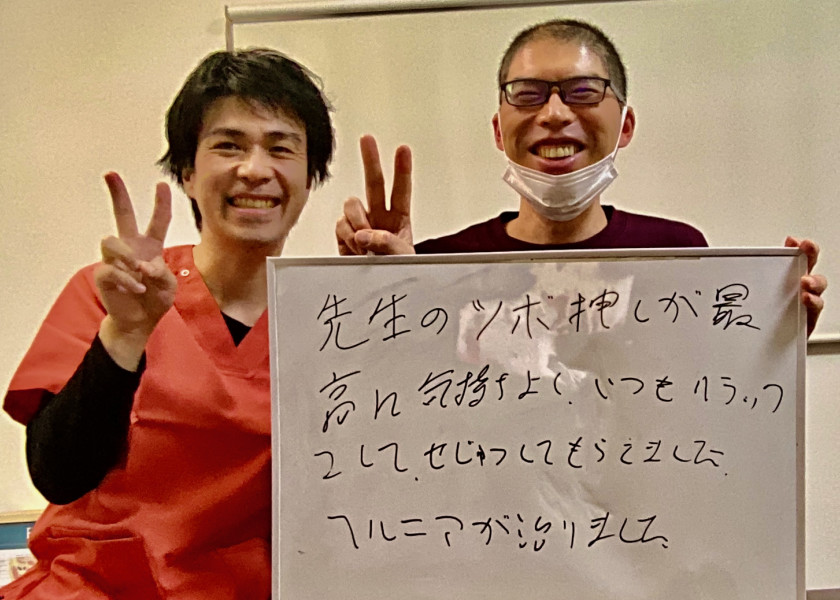 先生のツボ押しが最
高に気持ちよく、いつもリラック
スして、せじゅつしてもらえました。
ヘルニアが治りました